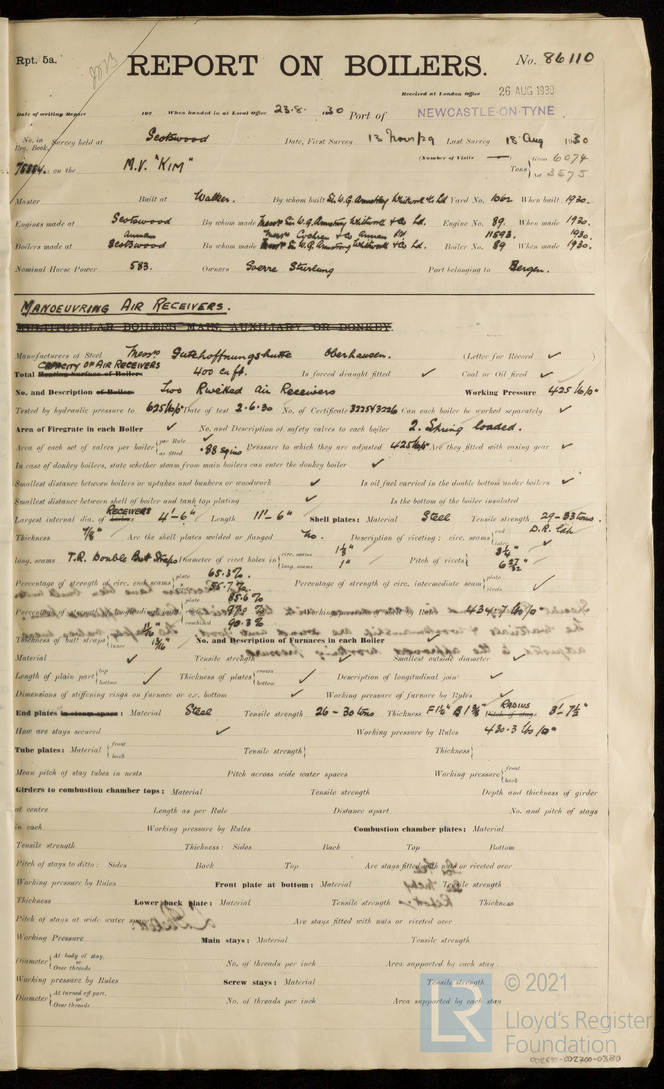 Rpt. 5a.
REPORT ON BOILERS.
No. 86110
Received at London Office 26 AUG 1930
Date of writing Report 192 When handed in at Local Office 23.8. 1930 Port of NEWCASTLE-ON-TYNE
No. in Reg. Book. Survey held at Scotswood Date, First Survey 13 Nov 29 Last Survey 18 Aug 1930
on the M.V. "KIM" (Number of Visits —) Tons Gross 6074 Net 3575
Master Built at Walker. By whom built Sir W.G. Armstrong Whitworth & Co Ld Yard No. 1062 When built 1930.
Engines made at Scotswood By whom made Messrs Sir W.G. Armstrong Whitworth & Co. Ld. Engine No. 89. When made 1930.
Annan Messrs Cochran & Co Annan Ld 11893. 1930.
Boilers made at Scotswood By whom made Messrs Sir W.G. Armstrong Whitworth & Co. Ld. Boiler No. 89 When made 1930.
Nominal Horse Power 583. Owners Port belonging to Bergen.
MANOEUVRING AIR RECEIVERS.
MULTITUBULAR BOILERS MAIN, AUXILIARY, OR DONKEY.
Manufacturers of Steel Messrs Gutehoffnungshutte Oberhausen. (Letter for Record ✓ )
CAPACITY OF AIR RECEIVERS
Total Heating Surface of Boilers 400 cu ft. Is forced draught fitted ✓ Coal or Oil fired ✓
No. and Description of Boilers Two Riveted Air Receivers Working Pressure 425 lb/□"
Tested by hydraulic pressure to 625 lb/□" Date of test 2.6.30 No. of Certificate Can each boiler be worked separately ✓
Area of Firegrate in each Boiler ✓ No. and Description of safety valves to each boiler 2. Spring loaded.
Area of each set of valves per boiler {per Rule ✓ as fitted .98 sq ins Pressure to which they are adjusted 425 lb/□" Are they fitted with easing gear ✓
In case of donkey boilers, state whether steam from main boilers can enter the donkey boiler ✓
Smallest distance between boilers or uptakes and bunkers or woodwork ✓ Is oil fuel carried in the double bottom under boilers ✓
Smallest distance between shell of boiler and tank top plating ✓ Is the bottom of the boiler insulated
RECEIVERS
Largest internal dia. of boilers 4'-6" Length 11'-6" Shell plates: Material Steel Tensile strength 29-33 tons.
Thickness 7/8" Are the shell plates welded or flanged No. Description of riveting: circ. seams {end D.R. Lap inter. ✓
long. seams T.R. Double Butt Straps Diameter of rivet holes in {circ. seams 1 1/8" long. seams 1" Pitch of rivets { 3 1/4" 6 27/32"
Percentage of strength of circ. end seams {plate 65.3%. rivets 55.7%. Percentage of strength of circ. intermediate seam {plate rivets ✓
85.6% 97.2 % 90.3% Working pressure of shell by Rules 434.7 lb/□"
Thickness of butt straps {outer 11/16" inner 13/16" No. and Description of Furnaces in each Boiler ✓
Material ✓ Tensile strength ✓ Smallest outside diameter ✓
Length of plain part {top bottom ✓ Thickness of plates {crown bottom ✓ Description of longitudinal joint ✓
Dimensions of stiffening rings on furnace or c.c. bottom ✓ Working pressure of furnace by Rules ✓
End plates in steam space: Material Steel Tensile strength 26-30 tons Thickness F 1 1/4" B 1 3/8" RADIUS Pitch of stays 3'-7 1/2"
How are stays secured ✓ Working pressure by Rules 430.3 lb/□"
Tube plates: Material {front back Tensile strength{ Thickness{
Mean pitch of stay tubes in nests Pitch across wide water spaces Working pressure {front back
Girders to combustion chamber tops: Material Tensile strength Depth and thickness of girder
at centre Length as per Rule Distance apart No. and pitch of stays
in each Working pressure by Rules Combustion chamber plates: Material
Tensile strength Thickness: Sides Back Top Bottom
Pitch of stays to ditto: Sides Back Top Are stays fitted with nuts or riveted over
Working pressure by Rules Front plate at bottom: Material Tensile strength
Thickness Lower back plate: Material Tensile strength Thickness
Pitch of stays at wide water space Are stays fitted with nuts or riveted over
Working Pressure Main stays: Material Tensile strength
Diameter {At body of stay, or Over threads No. of threads per inch Area supported by each stay
Working pressure by Rules Screw stays: Material Tensile strength
Diameter {At turned off part, or Over threads No. of threads per inch Area supported by each stay
LR © 2021
Lloyd's Register
Foundation
002690-002700-0380